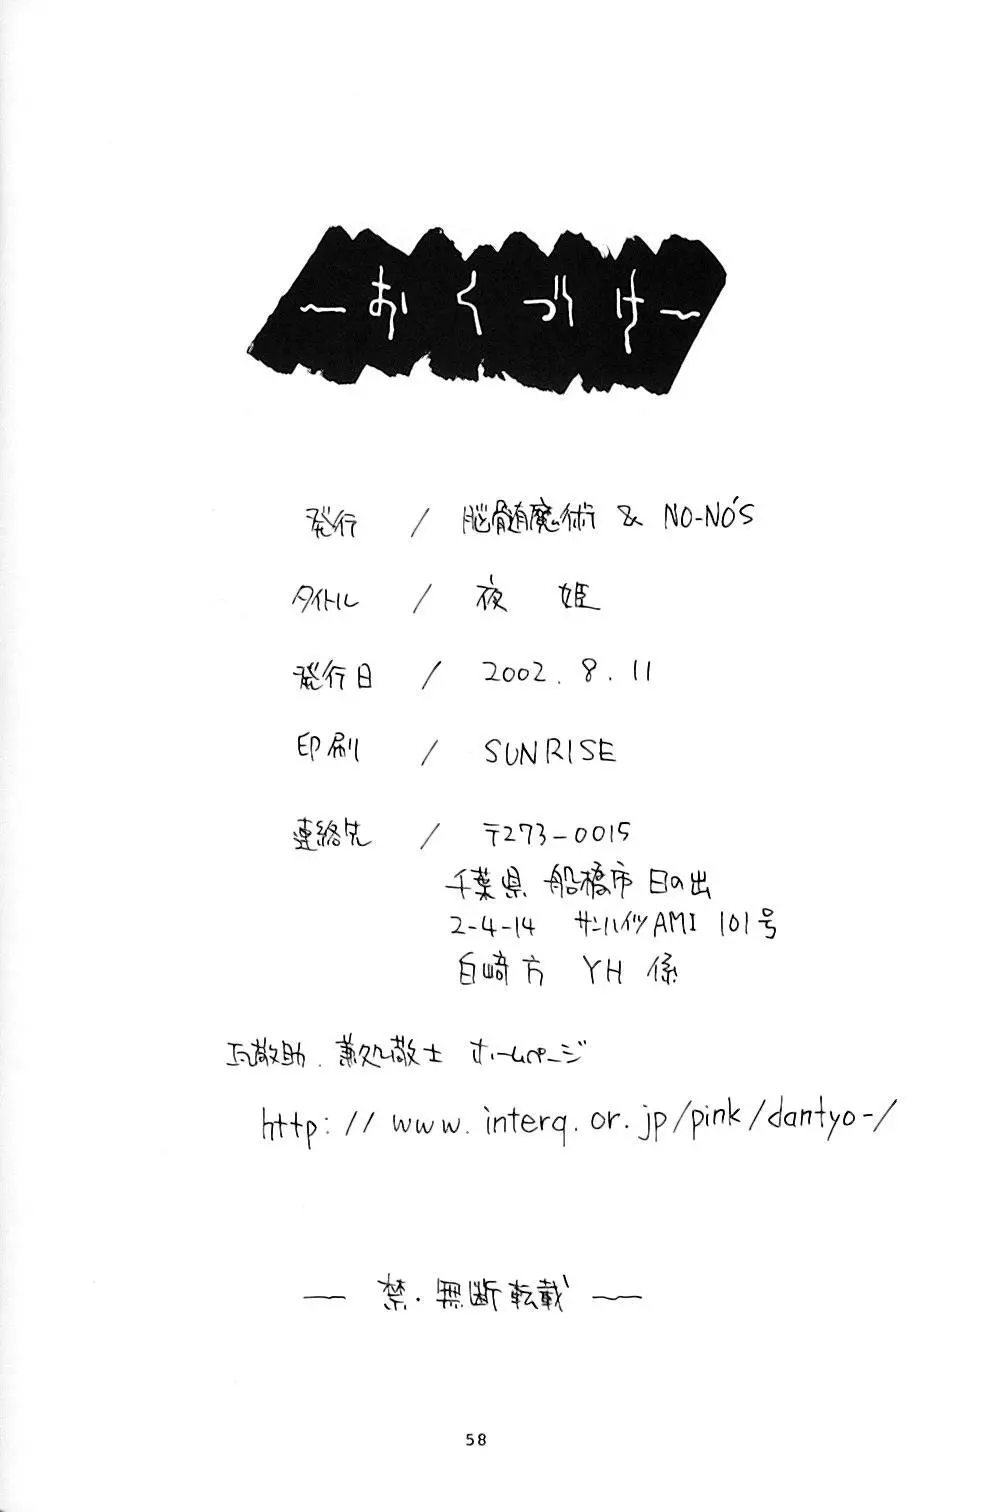 ~おくづけ~
発行 / 脳髄魔術 & NO-NO'S
タイトル / 夜 姫
発行日 / 2002.8.11
印刷 / SUNRISE
連絡先 / 〒273-0015
千葉県 船橋市 日の出
2-4-14 サンハイツAMI 101号
白崎方 YH 係
瓦敬助.兼処敬士 ホームページ
http://www.interq.or.jp/pink/dantyo-/
― 禁・無断転載 ―
58